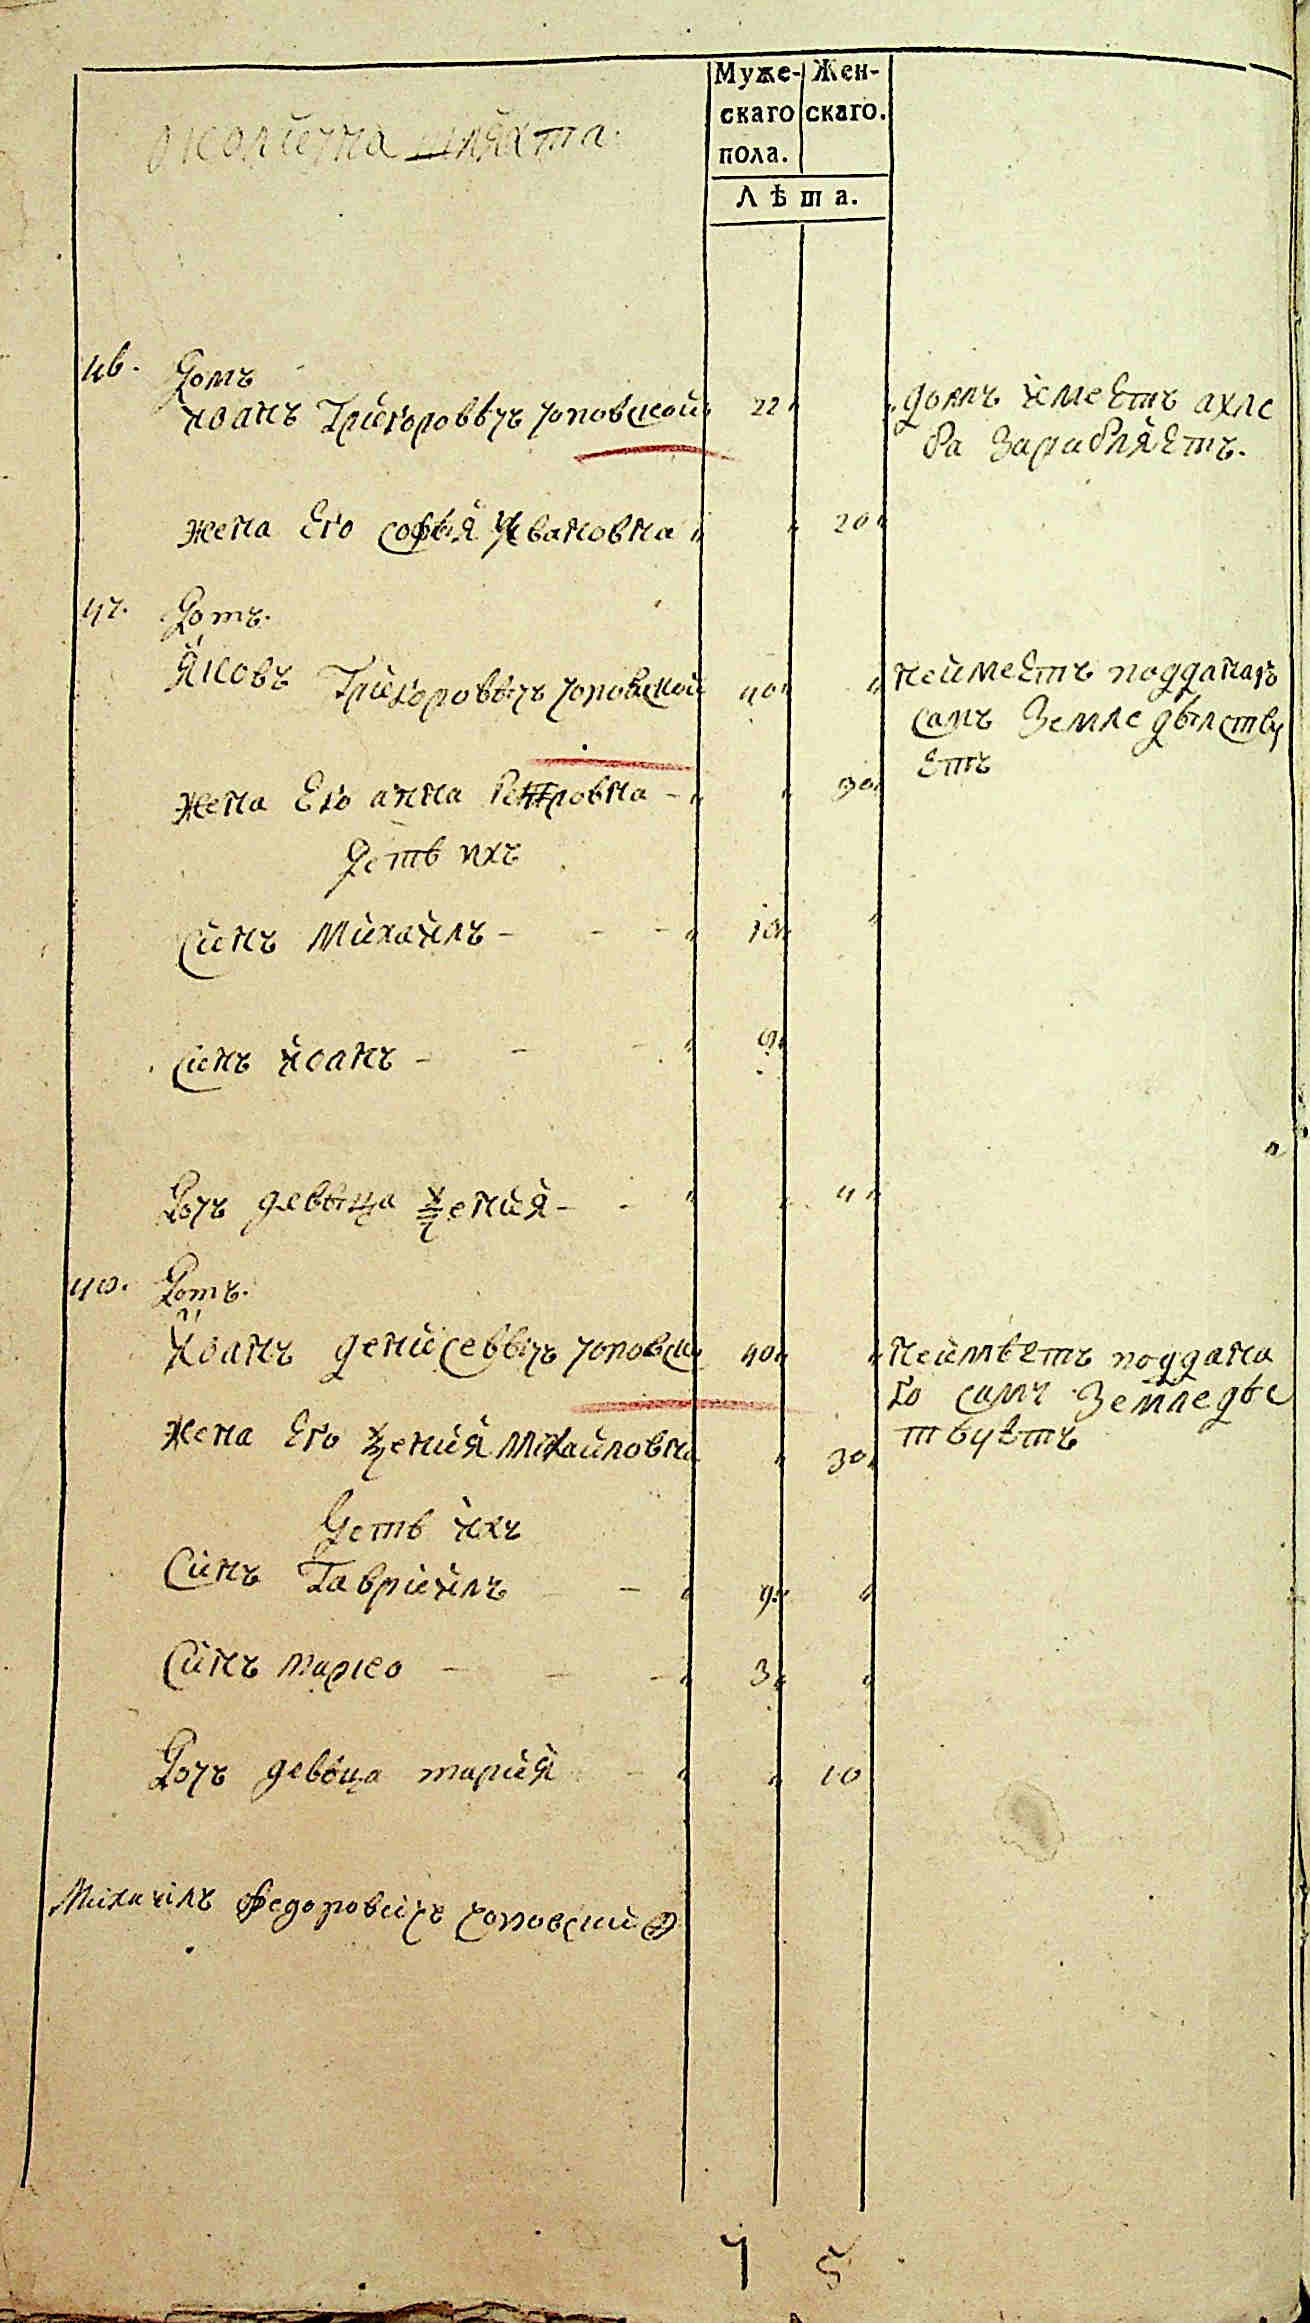 Муже- Жен-
скаго скаго.
пола.
Лѣта.
околична шляхта.
46. Домъ
Иоанъ Григоровѣчъ Чоповской 22 домъ имеетъ ахле
ба зарабляетъ.
жена Его софѣя Ивановна 20
47. Домъ.
Яковъ Григоровѣчъ Чоповской 40 неймеетъ подданаго
самъ Земледѣлству
Етъ
жена Его анна Петровна - 30
Детѣ ихъ
Синъ Михайлъ - - - 10
Синъ Иоанъ - - - 9
Дочъ девѣца Ксения - - 4
48. Домъ.
Иоанъ денисевѣчъ Чоповски 40 неймѣетъ поддана
го самъ Земледѣс
твуетъ
жена Его Ксения Михайловна 30
Детѣ ихъ
Синъ Гавриилъ - - 9
Синъ марко - - - 3
Дочъ девѣца мария - 10
Михаилъ Федоровичъ Чоповский
7 5